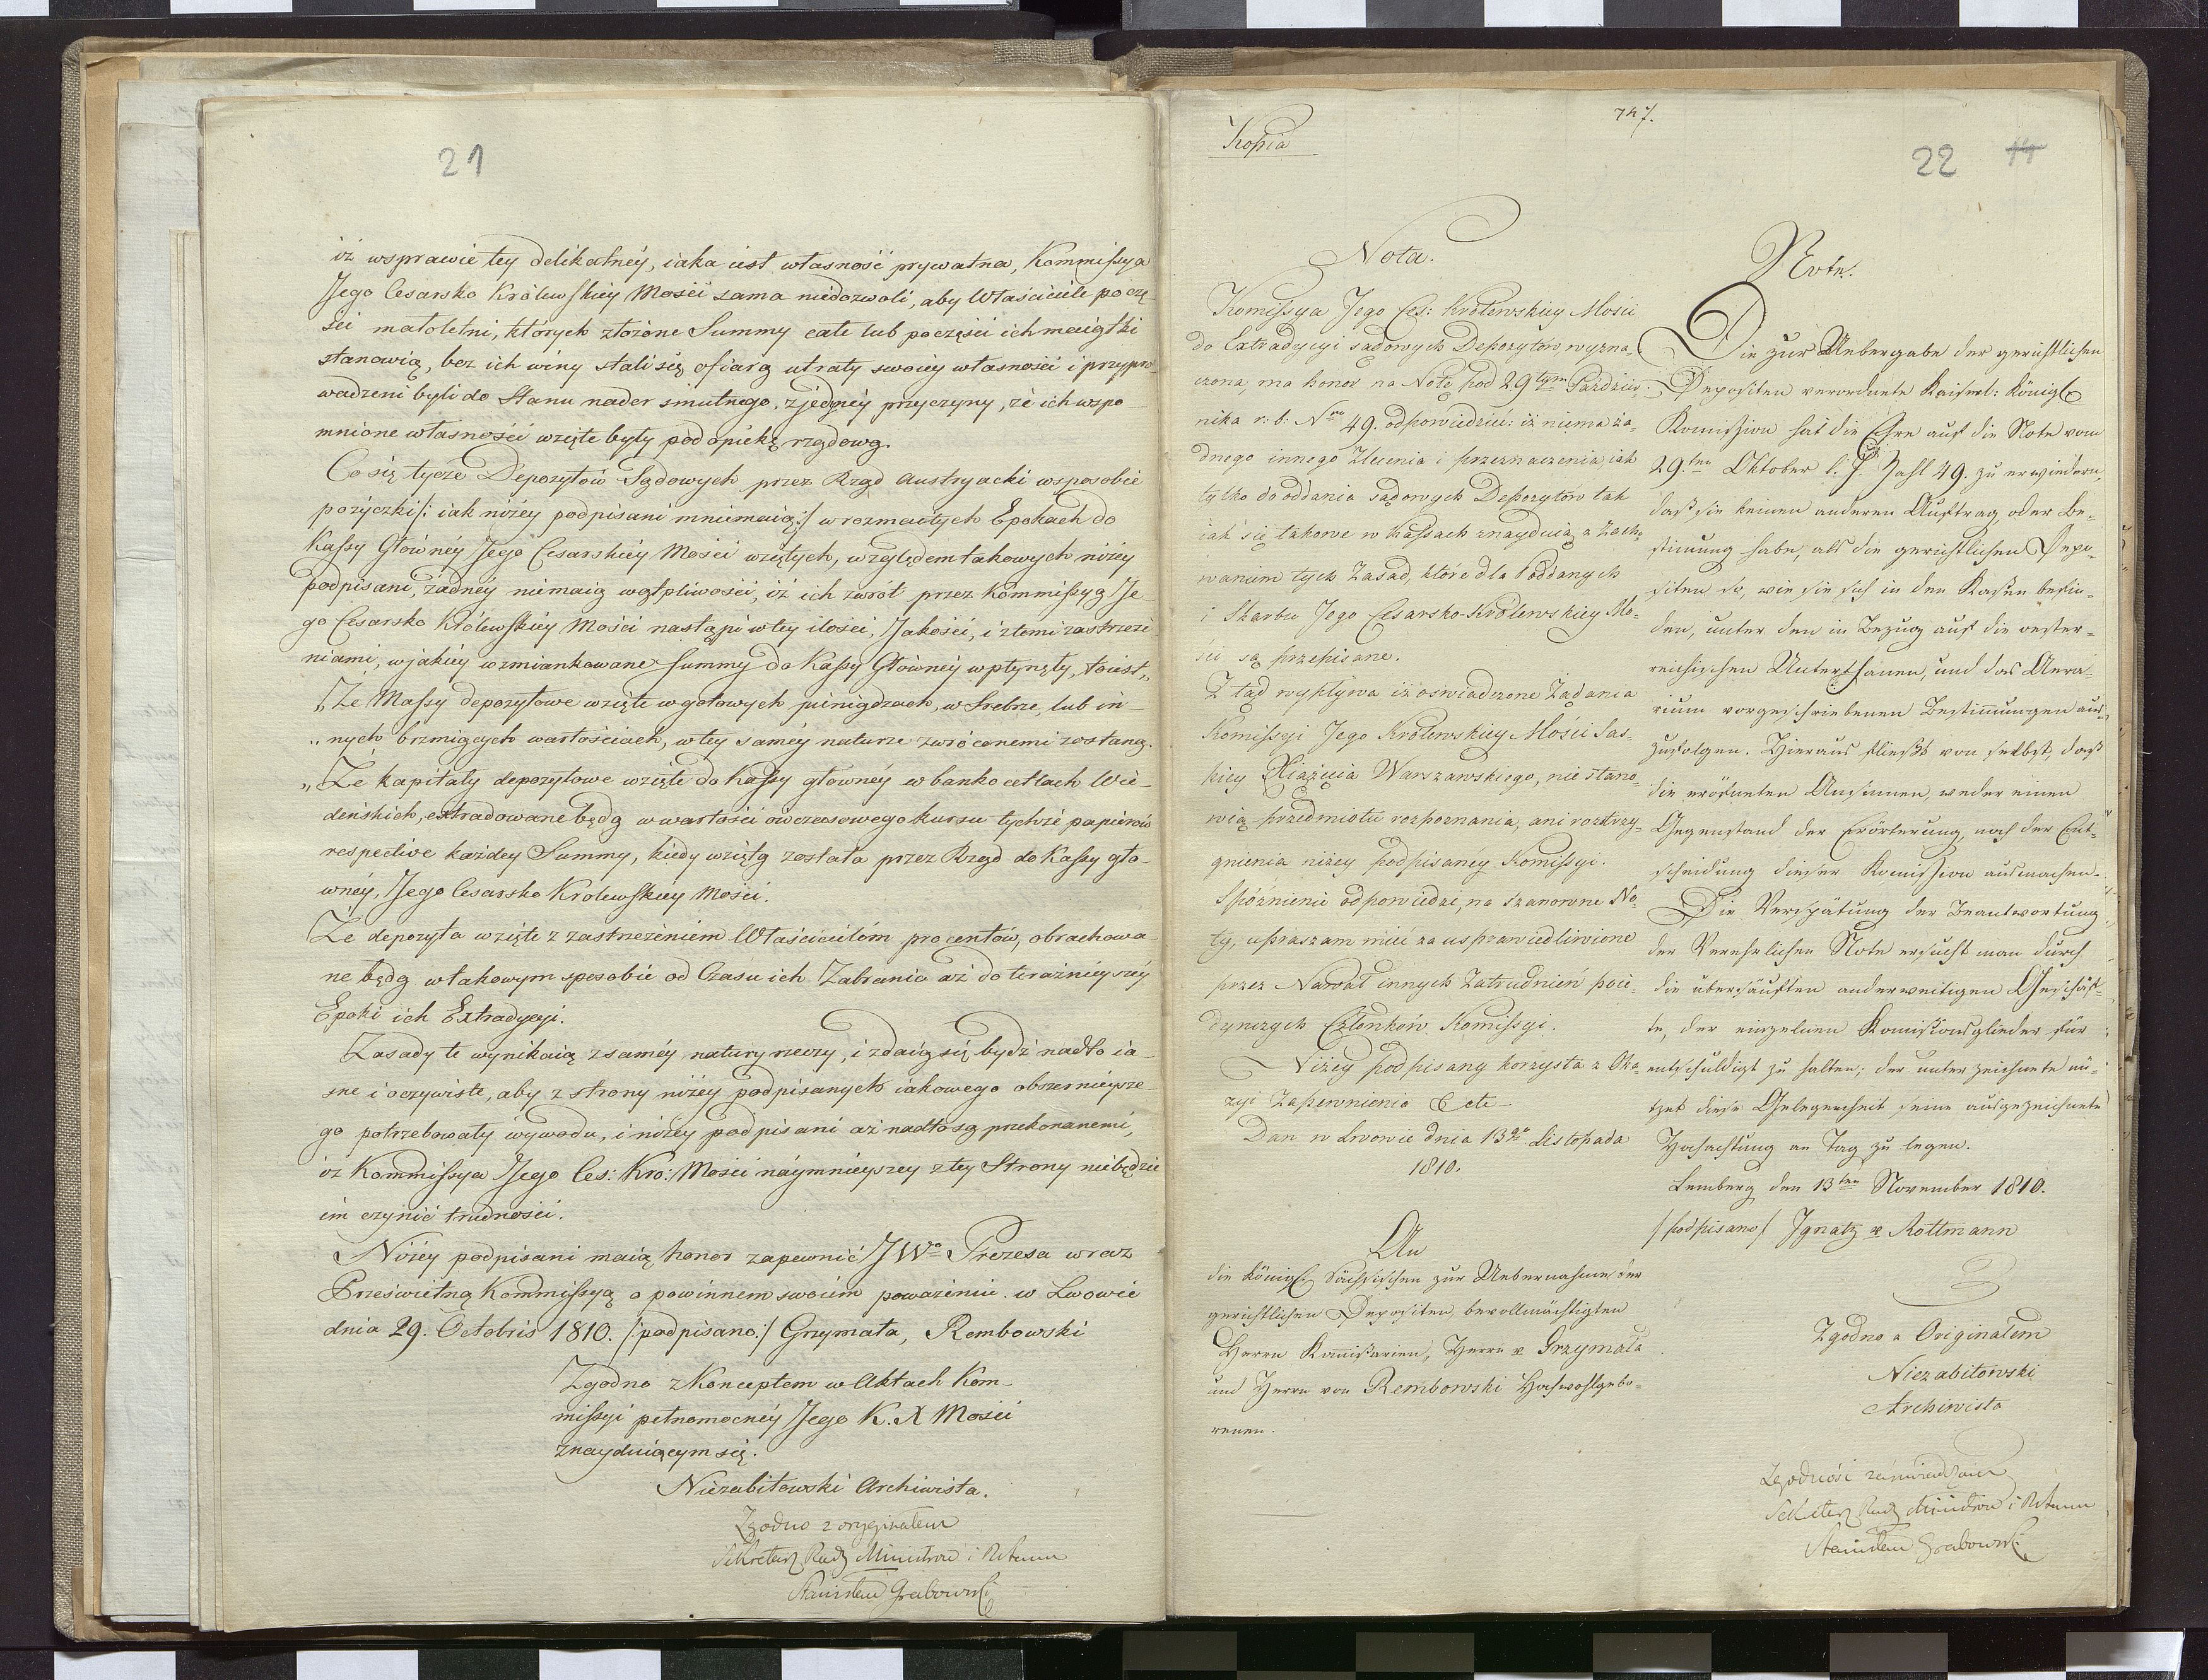 21
iż wsprawie tey delikatnéy, iaka iest własność prywatna, Kommissya
Jego Cesarsko Królewskiey Mości sama niedozwoli, aby Właściciele poczę-
ści małoletni, których złożone Summy całe lub poczęści ich maiątki
stanowią, bez ich winy stali się ofiarą utraty swoiey własności i przypro
wadzeni byli do Stanu nader smutnego, z jednéy przyczyny, że ich wspo-
mnione własności wzięte były pod opiekę rządową.
Co się tycze Depozytów Sądowych przez Rząd Austryacki wsposobie
pożyczki /: iak niżey podpisani mniemaią :/ w rozmaitych Epokach do
Kassy Głównéy Jego Cesarskiéy Mości wziętych, względem takowych niżéy
podpisani, żadnéy niemaią wątpliwości, iż ich zwrót przez Kommissyą Je-
go Cesarsko Królewskiéy Mości nastąpi w tey ilości, Jakości, i z temi zastrzeże
niami, w jakiéy wzmiankowane Summy do Kassy Główney wpłynęły, toiest,,
„Że Massy depozytowe wzięte w gotowych pieniądzach, w Srebrze, lub in-
„nych brzmiących wartościach, w tey saméy naturze zwróconemi zostaną.
„Że kapitały depozytowe wzięte do kassy główney w banko cetlach Wie-
deńskich, extradowane będą w wartości ówczasowego kursu tychże papierów
respective każdey Summy, kiedy wziętą została przez Rząd do Kassy głó-
wnéy, Jego Cesarsko Krolewskiéy Mości.
Że depozyta wzięte z zastrzeżeniem Właścicielom procentów, obrachowa-
ne będą w takowym sposobie od Czasu ich Zabrania aż do teraźnieyszéy
Epoki ich Extradycyi.
Zasady te wynikaią z saméy natury rzeczy, i zdaią się bydź nadto ia-
sne i oczywiste, aby z strony niżéy podpisanych iakowego obszernieysze-
go potrzebowały wywodu, i niżéy podpisani aż nadto są przekonanemi,
iż Kommissya Jego Ces: Kro: Mości náymnieyszey z tey Strony niebędzie
im czynić trudności.
Niżéy podpisani maią honor zapewnić JWo Prezesa wraz
Prześwietną Kommissyą o powinnem swoiém poważeniu. w Lwowie
dnia 29. Octobris 1810. /: podpisano :/ Grzymała, Rembowski
Zgodno z Konceptem w Aktach Kom-
missyi pełnomocnéy Jego K. X Mości
znayduiącym się.
Niezabitowski Archiwista.
Zgodno z oryginałem
Sekretarz Rady Ministrów i Stanu
Stanisław Grabowski
Kopia
747.
22 14
Nota.
Komissya Jego Ces: Królewskiey Mości
do Extradycyi sądowych Depozytów wyzna-
czona, ma honor na Notę pod 29tym Paździer-
nika r: b: Nro 49. odpowiedzieć: iż niema ża-
dnego innego Zlecenia i przeznaczenia, iak
tylko do oddania sądowych Depozytów tak
iak się takowe w Kassach znayduią z Zacho-
waniem tych Zasad, które dla Poddanych
i Skarbu Jego Cesarsko-Królewskiey Mo-
ści są przepisane.
Z tąd wypływa iż oświadczone Żądania
Komissyi Jego Królewskiey Mości Sas-
kiey Xiążęcia Warszawskiego, nie stano-
wią przedmiotu rozpoznania, ani rozstrzy-
gnienia niżey podpisaney Komissyi.
Spóźnienie odpowiedzi, na szanowne No-
ty, upraszam mieć za usprawiedliwione
przez Nawał innych Zatrudnień poie-
dynczych Członków Komissyi.
Niżey podpisany korzysta z Oka
zyi Zapewnienia Cete
Dan w Lwowie dnia 13go Listopada
1810.
An
die Königl. Sächsischen zur Uebernahme der
gerichtlichen Depositen bevollmächtigten
Herrn Kommißarien, Herrn v Grzymała
und Herrn von Rembowski Hochwohlgebo-
renen.
Note.
Die zur Uebergabe der gerichtlichen
Depositen verordnete Kaiserl: Königl
Kommission hat die Ehre auf die Note vom
29.ten Oktober l. J. Zahl 49. zu erwiedern,
daß sie keinen anderen Auftrag, oder Be-
stimung habe, als die gerichtlichen Depo-
siten so, wie sie sich in den Kaßen befin-
den, unter den in Bezug auf die oester-
reichischen Unterthanen, und das Aera-
rium vorgeschriebenen Bestimungen aus-
zufolgen. Hieraus fließt von selbst, daß
die eröfneten Ansinnen, weder einen
Gegenstand der Erörterung, noch der Ent-
scheidung dieser Komission ausmachen.
Die Verspätung der Beantwortung
der Verehrlichen Note ersucht man durch
die überhäuften anderweitigen Geschäf-
te, der einzelnen Komißionsglieder für
entschuldigt zu halten; der unterzeichnete nü-
tzet diese Gelegenheit seine ausgezeichnete
Hochachtung an Tag zu legen.
Lemberg den 13ten November 1810.
/podpisano/ Jgnatz v Rottmann
Zgodno z Originałem
Niezabitowski
Archiwista
Zgodność zaświadcza
Sekretarz Rady Ministrów i Stanu
Stanisław Grabowski